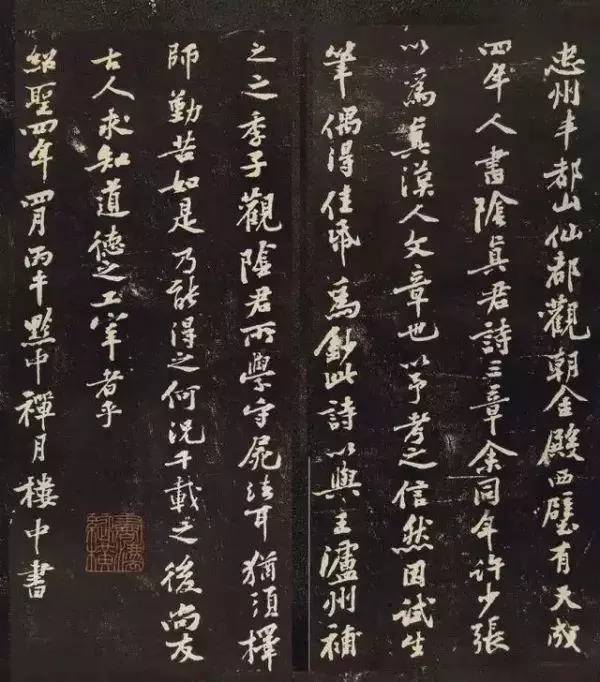 忠州丰都山仙都觀朝金殿西壁有天成
四年人書陰真君詩三章余同年許少張
以爲真漢人文章也以予考之信然因試生
筆偶得佳紙爲鈔此詩以與王瀘州補
之之季子觀陰君所學守屍法耳猶須擇
師勤苦如是乃能得之何況千載之後尚友
古人求知道德之工宰者乎
紹聖四年四月丙午黔中禪月樓中書